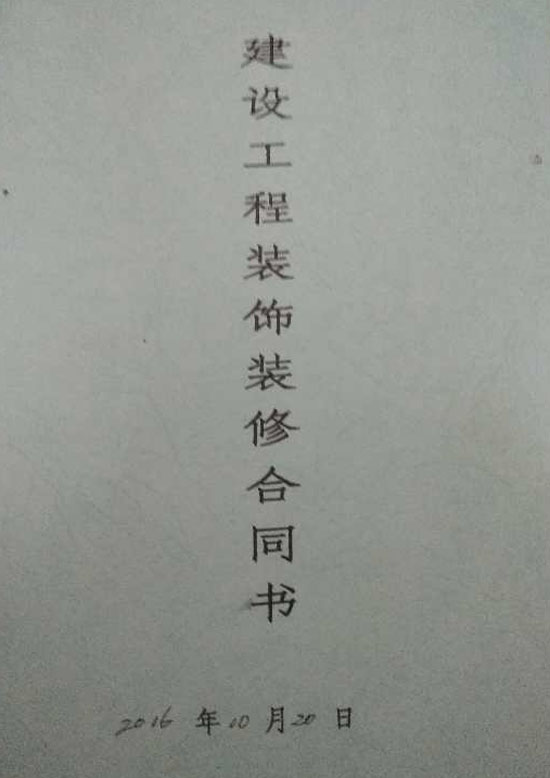 建设工程装饰装修合同书
2016年10月20日